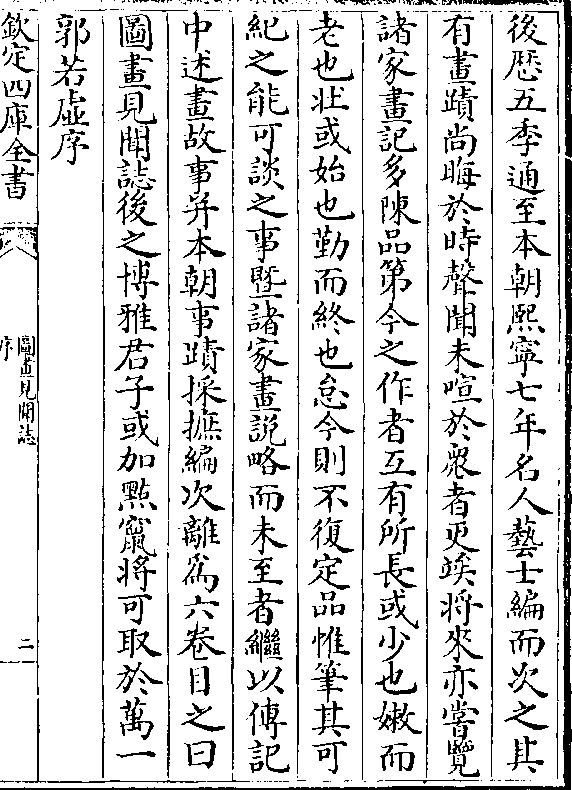 後歴五季通至本朝熙寧七年名人藝士編而次之其
有畫蹟尚晦於時聲聞未喧於衆者更竢將來亦嘗覽
諸家畫記多陳品第今之作者互有所長或少也嫩而
老也壯或始也勤而終也怠今則不復定品惟筆其可
紀之能可談之事暨諸家畫説略而未至者繼以傳記
中述畫故事并本朝事蹟採摭編次離爲六卷目之曰
圖畫見聞誌後之博雅君子或加㸃竄將可取於萬一
郭若虛序
欽定四庫全書
圖畫見聞誌
序
二